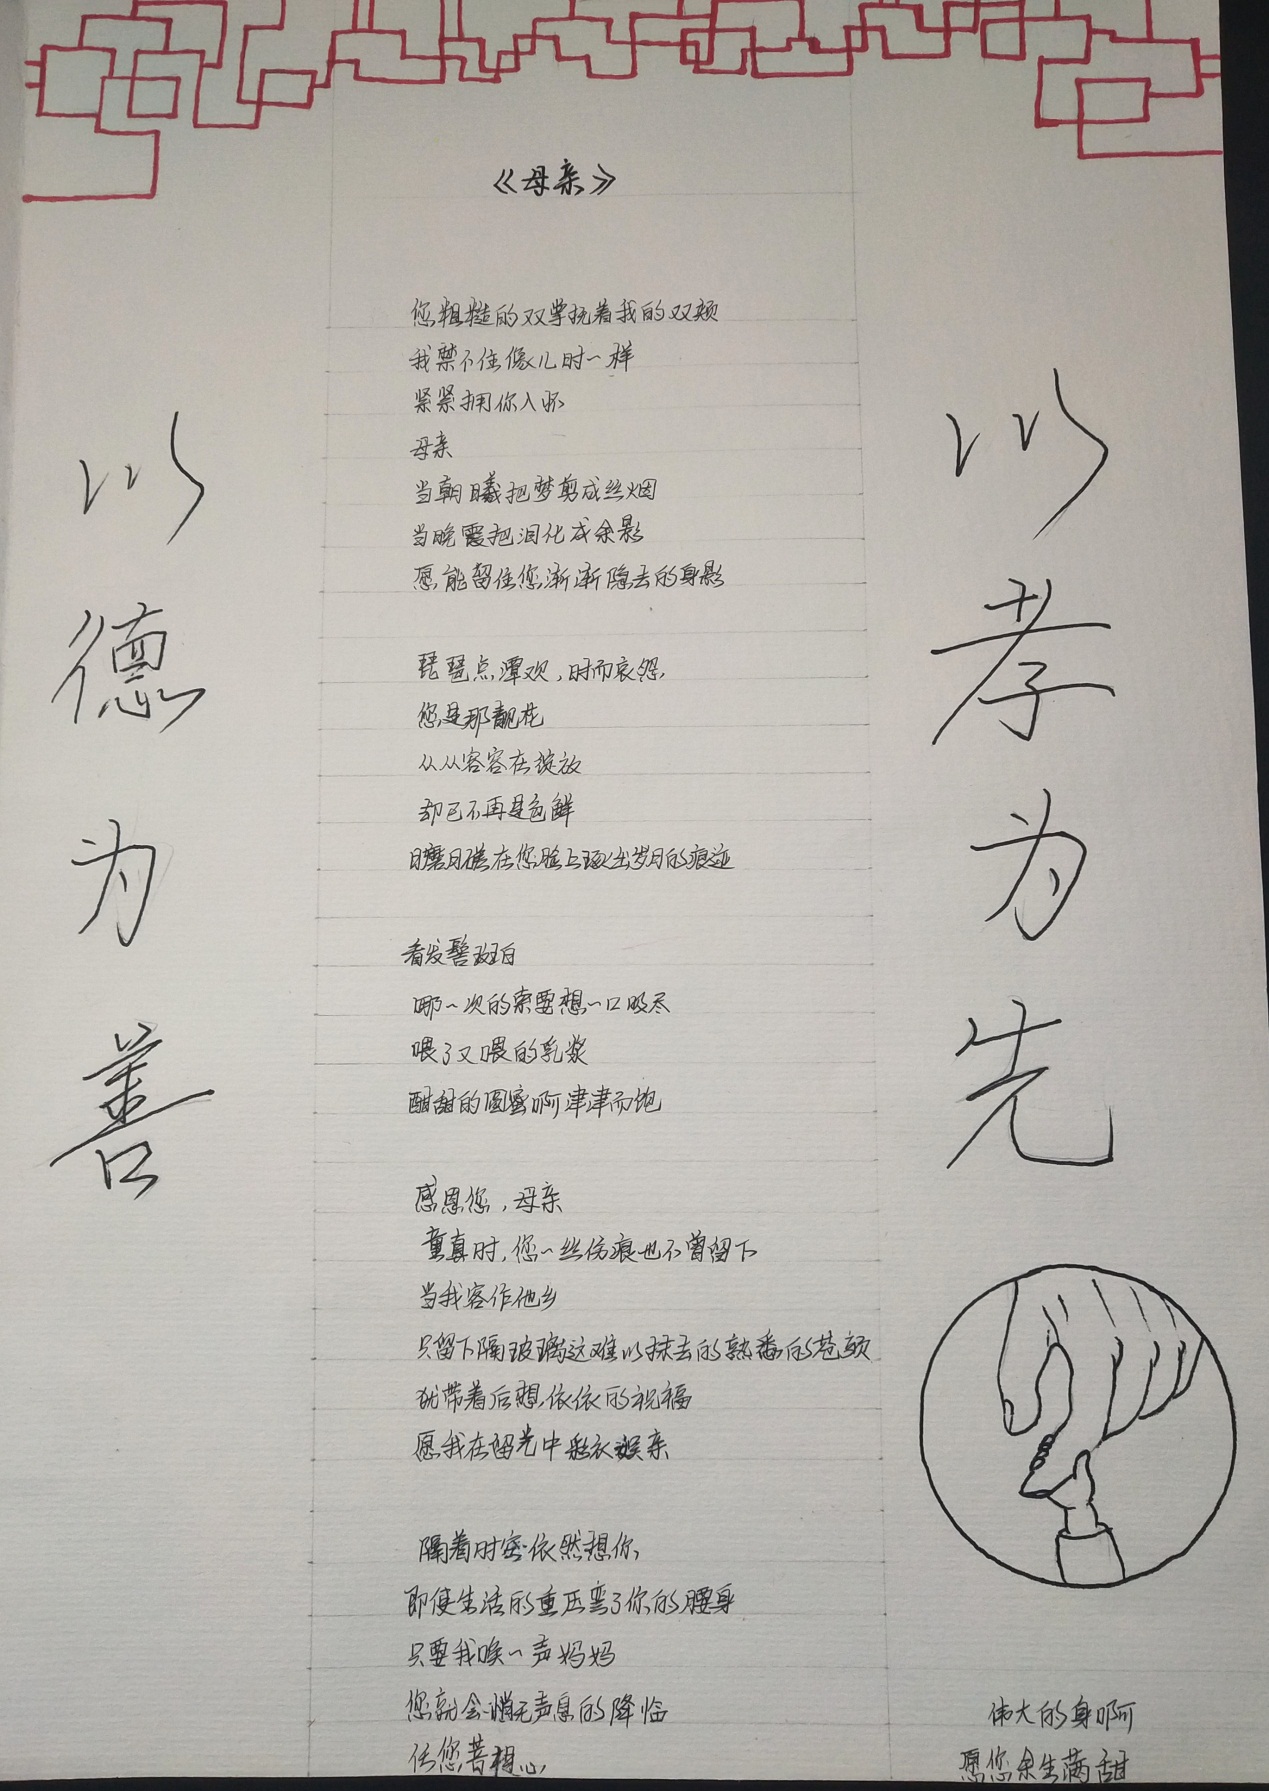 《母亲》
您粗糙的双掌抚着我的双颊
我禁不住像儿时一样
紧紧拥你入怀
母亲
当朝曦把梦剪成丝烟
当晚霞把泪化成余影
愿能留住您渐渐隐去的身影
琵琶点潭欢，时而哀怨，
您是那靓花
从从容容在绽放
却已不再是色鲜
日磨月磋在您脸上琢出岁月的痕迹
看发髻斑白
哪一次的索要想一口吸尽
喂了又喂的乳浆
酣甜的圆蜜啊津津而饱
感恩您，母亲
童真时，您一丝伤痕也不曾留下
当我客作他乡
只留下隔玻璃这难以抹去的熟番的苍颜
犹带着后想，依依的祝福
愿我在留光中彩衣娱亲
隔着时空依然想你，
即使生活的重压弯了你的腰身
只要我唤一声妈妈
您就会悄无声息的降临
任您菩提心，
以德为善
以孝为先
伟大的身啊
愿您余生满甜